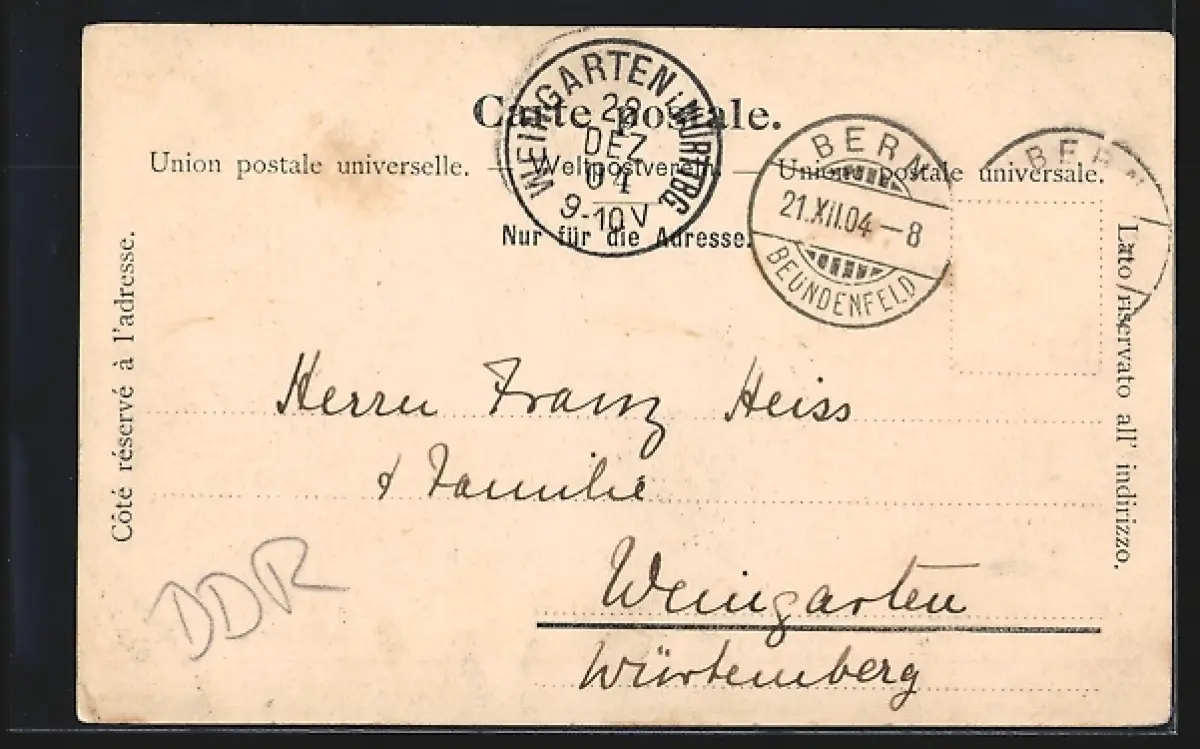 Carte postale.
Union postale universelle. — Weltpostverein. — Unione postale universale.
Nur für die Adresse.
WEINGARTEN i. WÜRTBG
DEZ
04
9-10 V
BERN
21.XII.04–8
BEUNDENFELD
BERN
Côté réservé à l'adresse.
Lato riservato all' indirizzo.
Herrn Franz Heiss
& Familie
Weingarten
Würtemberg
DDR